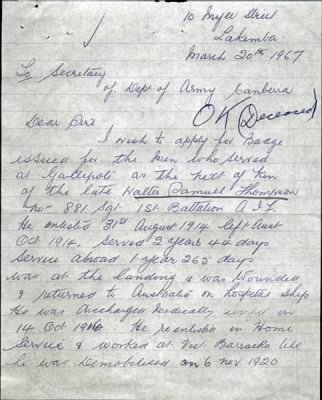 10 Street
Lakemba
March 20th 1967
To Secretary
of Dept of Army Canberra
OK (Deceased)
Dear Sirs
I wish to apply for Badge
issued for the men who served
at Gallipoli as the next of Kin
of the late Walter Samuel Thompson
No 881 Sgt 1st Battalion A.I.F.
He enlisted 31st August 1914 left Aust
Oct 1914. Served 2 years 44 days
Service abroad 1 year 265 days
was at the landing & was Wounded
& returned to Australia on hospital ship
He was discharged Medically on
14 Oct 1916 He reenlisted in Home
Service & worked at Vic Barracks till
he was Demobilised on 6 Nov 1920